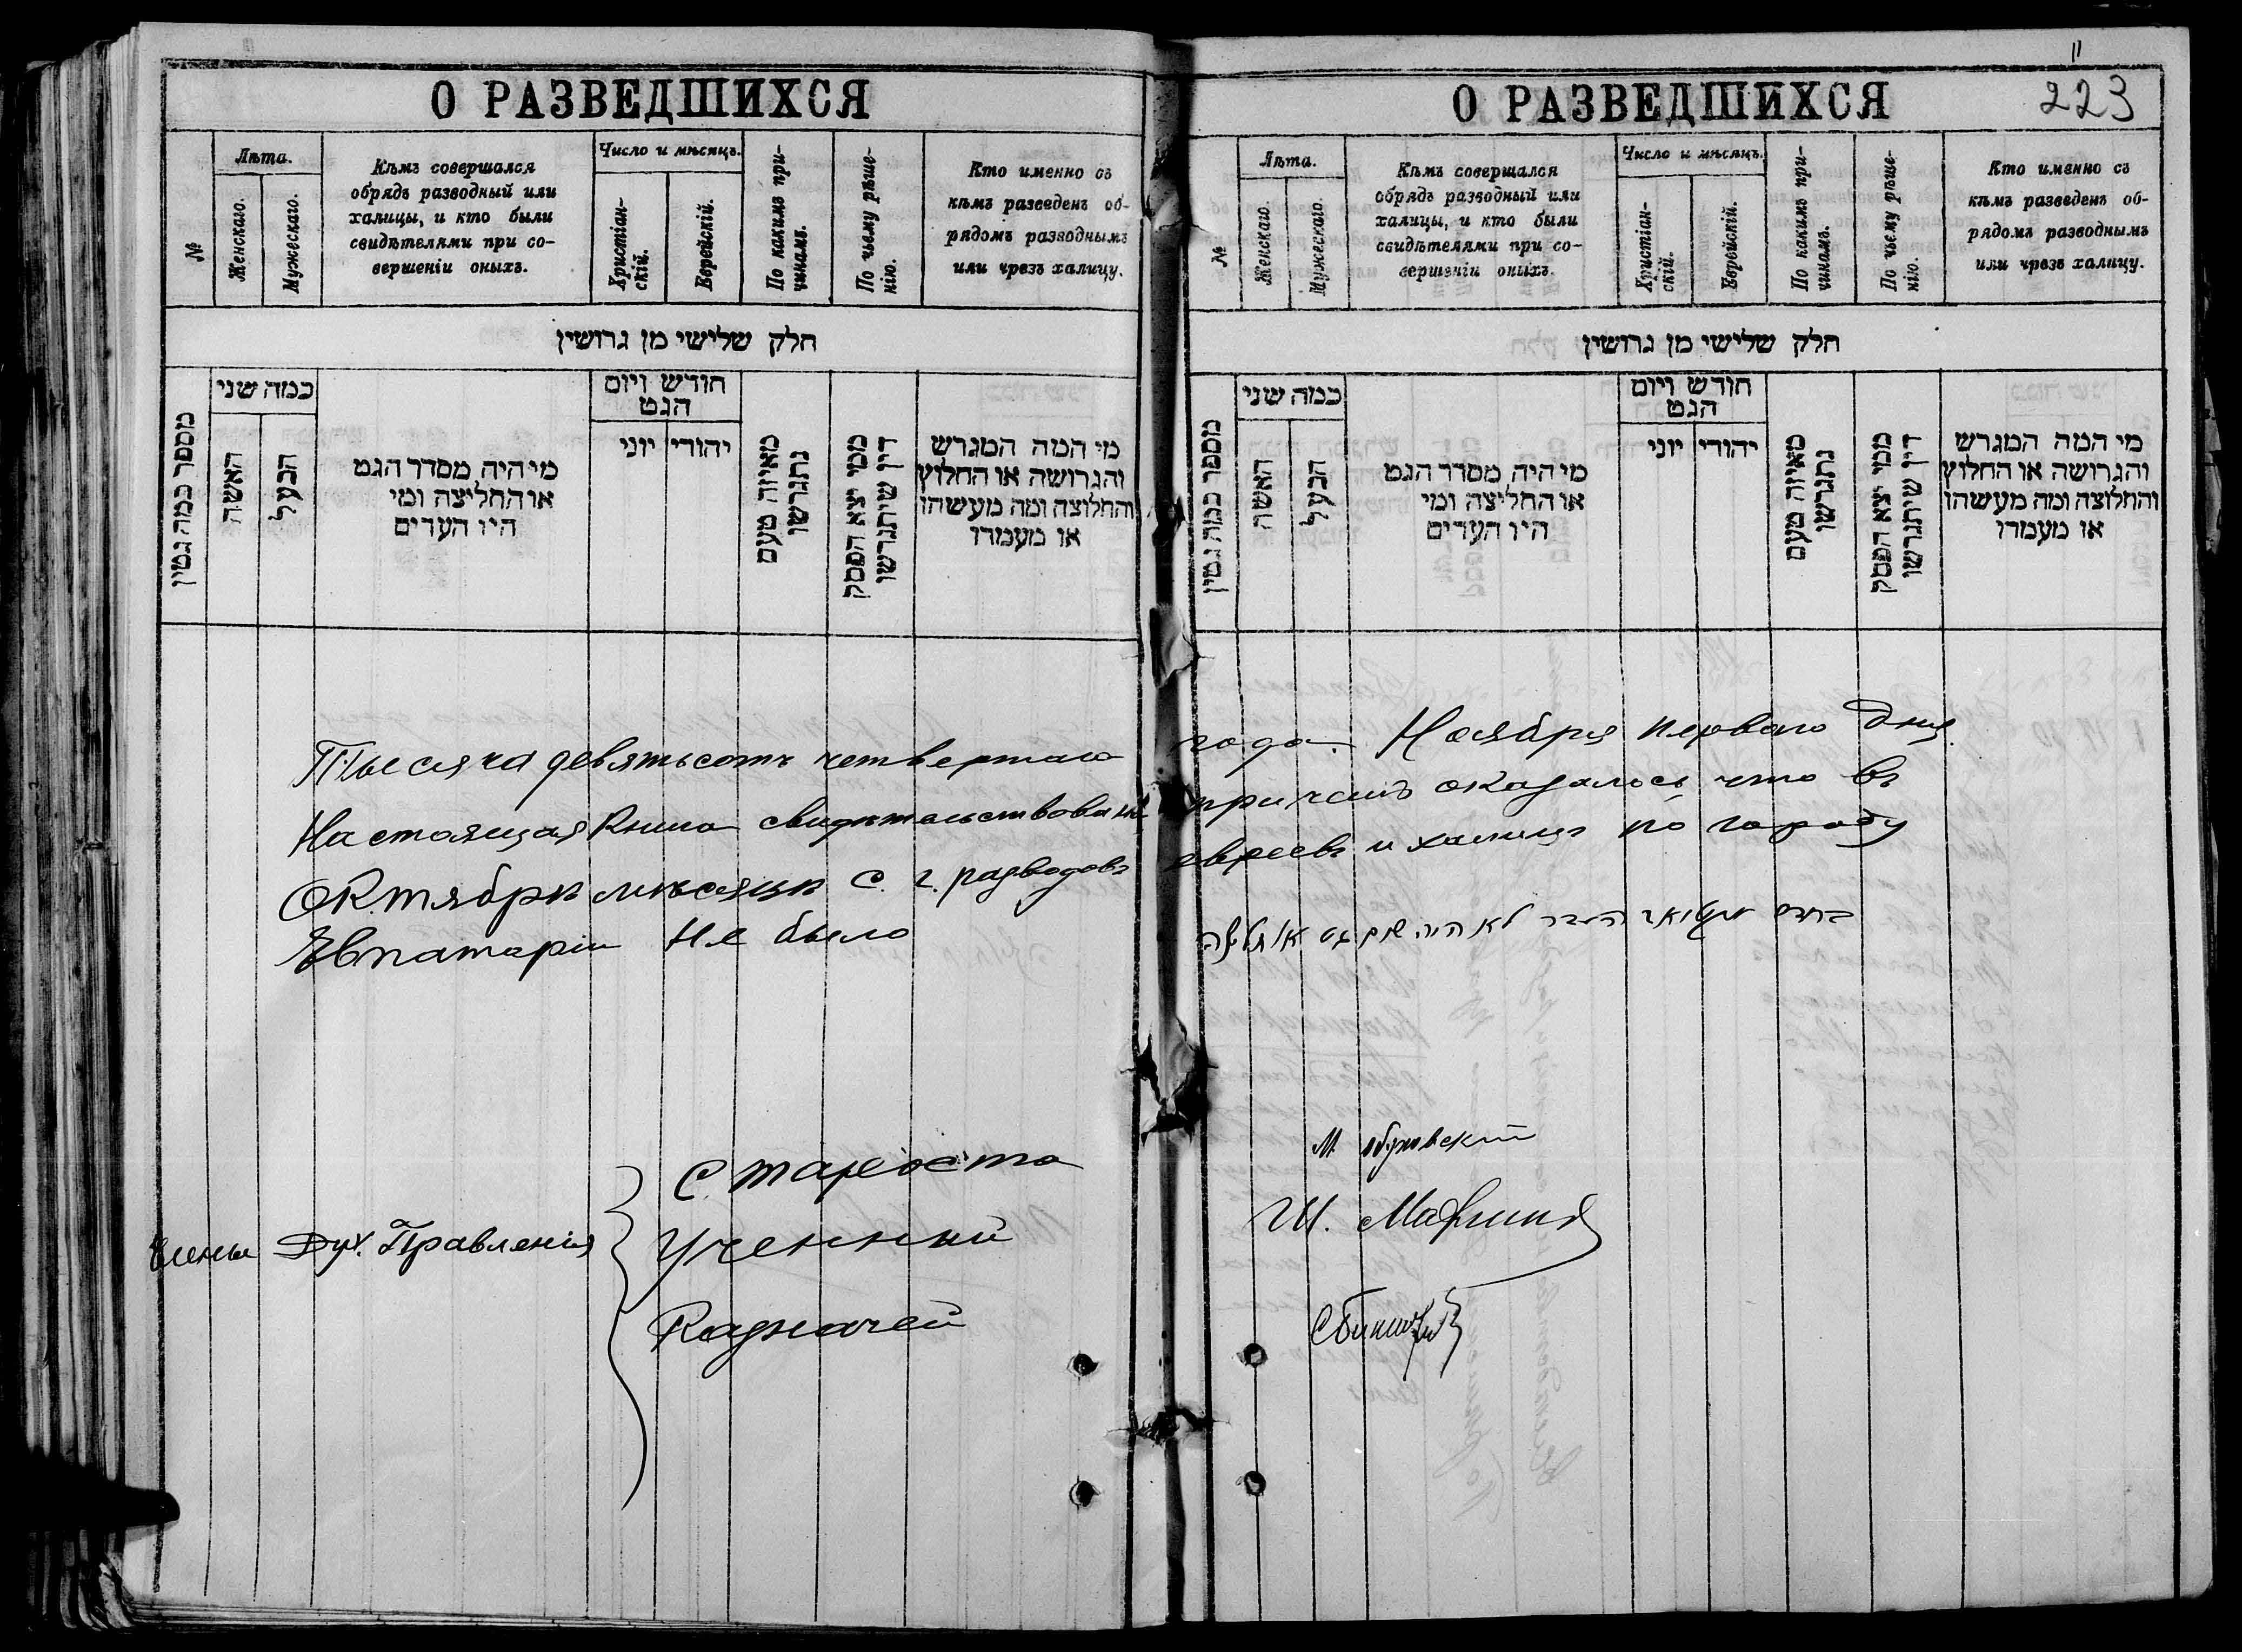 О РАЗВЕДШИХСЯ
№
Лѣта.
Женскаго.
Мужескаго.
Кѣмъ совершался
обрядъ разводный или
халицы, и кто были
свидѣтелями при со-
вершеніи оныхъ.
Число и мѣсяцъ.
Христіан-
скій.
Еврейскій.
По какимъ при-
чинамъ.
По чьему рѣше-
нію.
Кто именно съ
кѣмъ разведенъ об-
рядомъ разводнымъ
или чрезъ халицу.
חלק שלישי מן גרושין
מספר כמה גטין
כמה שני
האשה
הבעל
מי היה מסדר הגט
או החליצה ומי
היו העדים
חודש ויום
הגט
יהודי
יוני
מאיזה טעם
נתגרשו
ממי יצא הפסק
דין שיתגרשו
מי המה המגרש
והגרושה או החלוץ
והחלוצה ומה מעשהו
או מעמדו
О РАЗВЕДШИХСЯ
223
№
Лѣта.
Женскаго.
Мужескаго.
Кѣмъ совершался
обрядъ разводный или
халицы, и кто были
свидѣтелями при со-
вершеніи оныхъ.
Число и мѣсяцъ.
Христіан-
скій.
Еврейскій.
По какимъ при-
чинамъ.
По чьему рѣше-
нію.
Кто именно съ
кѣмъ разведенъ об-
рядомъ разводнымъ
или чрезъ халицу.
חלק שלישי מן גרושין
מספר כמה גטין
כמה שני
האשה
הבעל
מי היה מסדר הגט
או החליצה ומי
היו העדים
חודש ויום
הגט
יהודי
יוני
מאיזה טעם
נתגרשו
ממי יצא הפסק
דין שיתגרשו
מי המה המגרש
והגרושה או החלוץ
והחלוצה ומה מעשהו
או מעמדו
Тысяча девятьсотъ четвертаго года. Ноября перваго дня
Настоящая Книга свидѣтельствована причемъ оказалось что въ
Октябрѣ мѣсяцѣ с. г. разводовъ евреевъ и халицъ по городу
Евпаторіи не было
לא היה שום גט
Члены Дух. Правленія
Староста
Ученный
Казначей
М.
Ш.
С